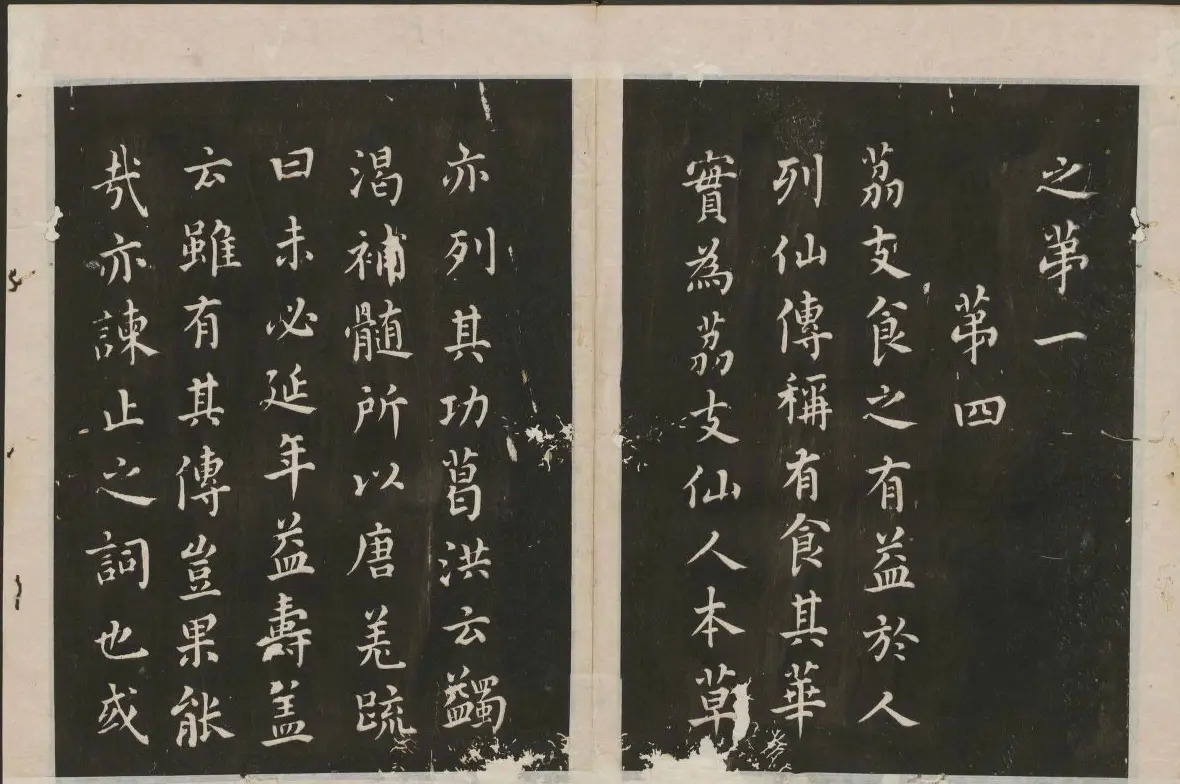 之第一
第四
荔支食之有益於人
列仙傳稱有食其華
實為荔支仙人本草
亦列其功葛洪云蠲
渴補髓所以唐羌䟽
曰未必延年益壽盖
云雖有其傳豈果能
㦲亦諫止之詞也或